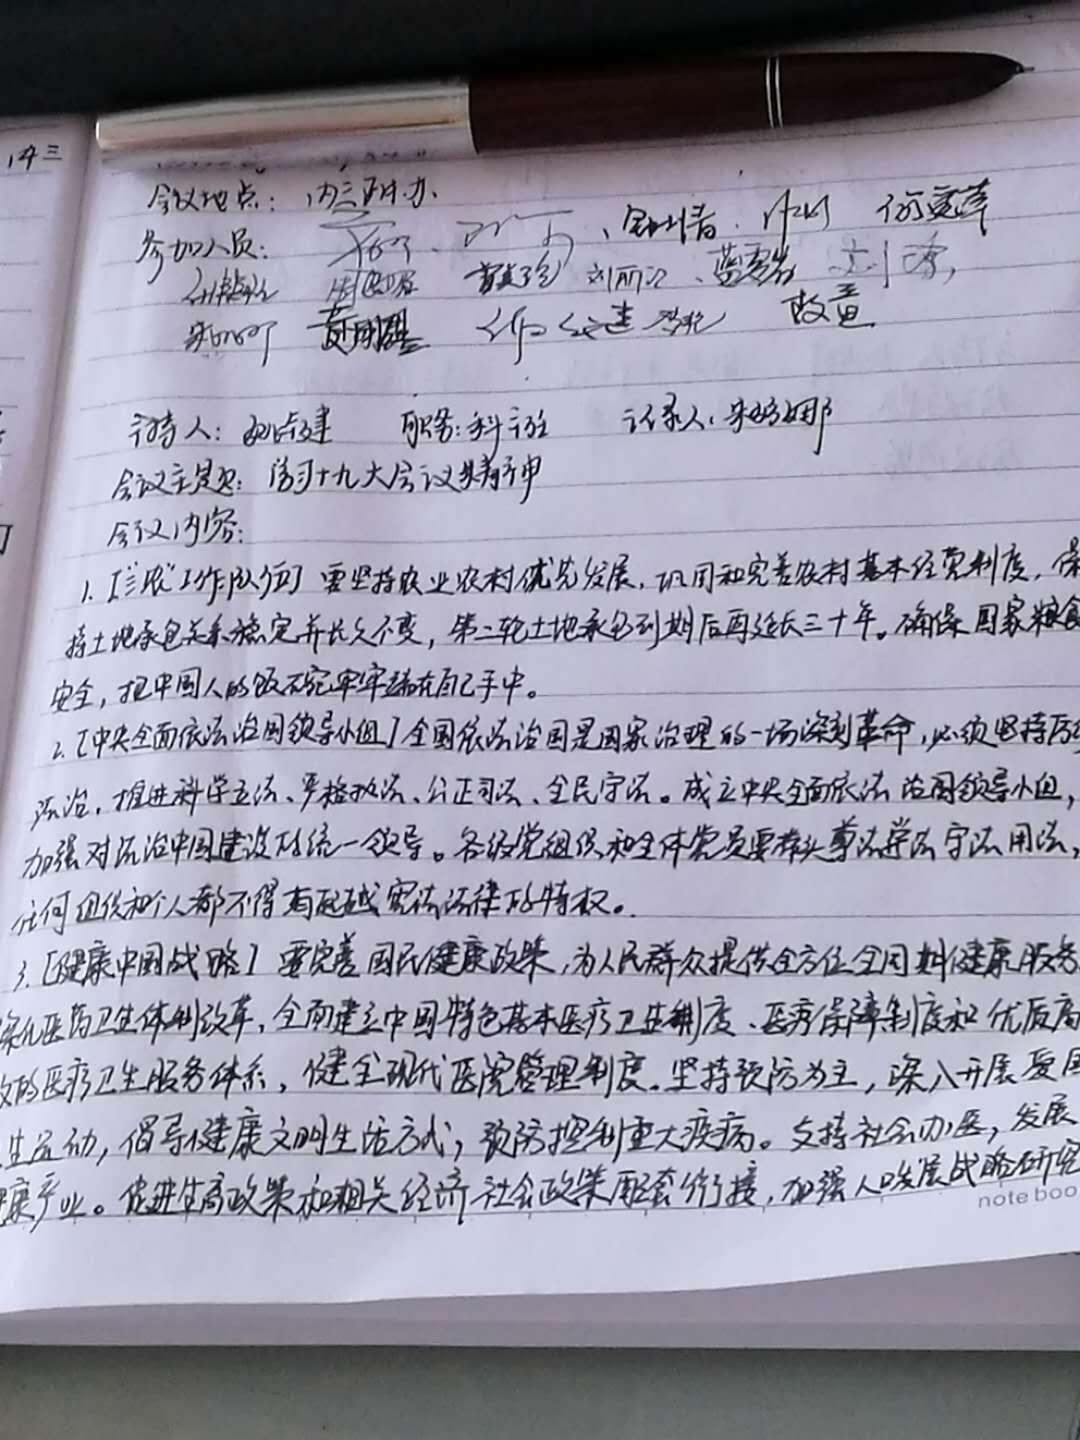 会议地点：内三医办
参加人员：
刘丽
主持人： 职务：科主任 记录人：
会议主题：学习十九大会议精神
会议内容：
1.【"三农"工作队伍】要坚持农业农村优先发展，巩固和完善农村基本经营制度，保
持土地承包关系稳定并长久不变，第二轮土地承包到期后再延长三十年。确保国家粮食
安全，把中国人的饭碗牢牢端在自己手中。
2.【中央全面依法治国领导小组】全国依法治国是国家治理的一场深刻革命，必须坚持厉行
法治，推进科学立法、严格执法、公正司法、全民守法。成立中央全面依法治国领导小组，
加强对法治中国建设的统一领导。各级党组织和全体党员要带头尊法学法守法用法，
任何组织和个人都不得有超越宪法法律的特权。
3.【健康中国战略】要完善国民健康政策，为人民群众提供全方位全周期健康服务
深化医药卫生体制改革，全面建立中国特色基本医疗卫生制度、医疗保障制度和优质高
效的医疗卫生服务体系，健全现代医院管理制度。坚持预防为主，深入开展爱国
生运动，倡导健康文明生活方式，预防控制重大疾病。支持社会办医，发展
健康产业。促进生育政策和相关经济社会政策配套衔接，加强人口发展战略研究
note boo